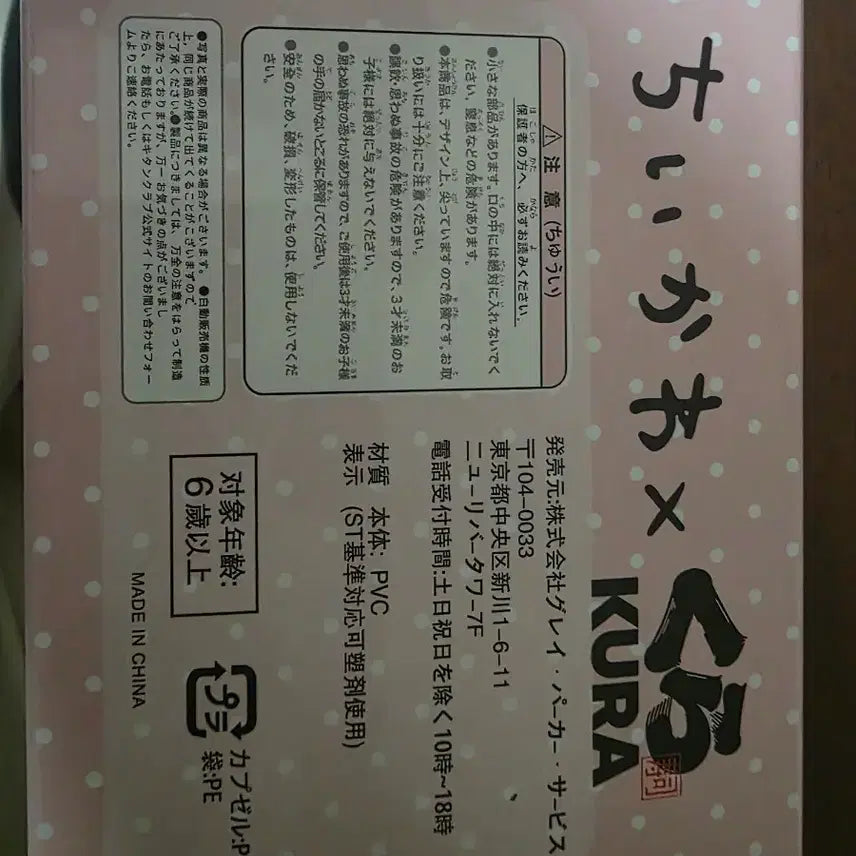 ちいかわ×くら寿司
KURA
⚠注 意(ちゅうい)
保証者の方へ、必ずお読みください。
●小さな部品があります。口の中には絶対に入れないでく
ださい。窒息などの危険があります。
●本商品は、デザイン上、尖っていますので危険です。お取
り扱いには十分にご注意ください。
●誤飲・思わぬ事故の危険がありますので、3才未満のお
子様には絶対に与えないでください。
●思わぬ事故の恐れがありますので、ご使用後は3才未満のお子様
の手の届かないところに保管してください。
●安全のため、破損、変形したものは、使用しないでくだ
さい。
●写真と実際の商品は異なる場合がございます。 ●自動販売機の性質
上、同じ商品が続けて出てくることがございますので
ご了承ください。●製品につきましては、万全の注意をはらって製造
にあたっておりますが、万一お気づきの点がございまし
たら、お電話もしくはキタンクラブ公式サイトのお問い合わせフォー
ムよりご連絡ください。
発売元:株式会社グレイ・パーカー・サービス
〒104-0033
東京都中央区新川1-6-11
ニューリバータワー7F
電話受付時間:土日祝日を除く10時~18時
材質 本体: PVC
表示 (ST基準対応可塑剤使用)
対象年齢:
6歳以上
MADE IN CHINA
プラ
カプセル:P
袋:PE